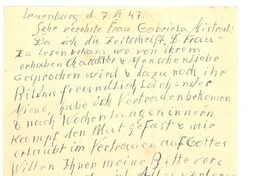 Lauenburg d. 7. VI. 47.
Sehr verehrte Frau Gabriela Mistral!
Da ich die Zeitschrift, D. Frau
zu lesen bekam, wo von ihrem
erhaben Charakter & Menschenliebe
gesprochen wird & dazu noch ihr
Bildnis freundlich lächender
Miene, habe ich Vertrauen bekommen
& nach Wochenlangen innern
Kampf den Mut gefaßt & mir
erlaubt im Vertrauen auf Gottes
Willen Ihnen meine Bitte vor